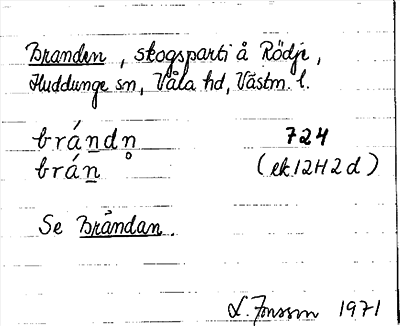 Branden, skogsparti å Rödje,
Huddunge sn, Våla hd, Västm. l.
brándn 724
brán̥ (ek. 12H2d)
Se Brändan.
L. Jonsson 1971